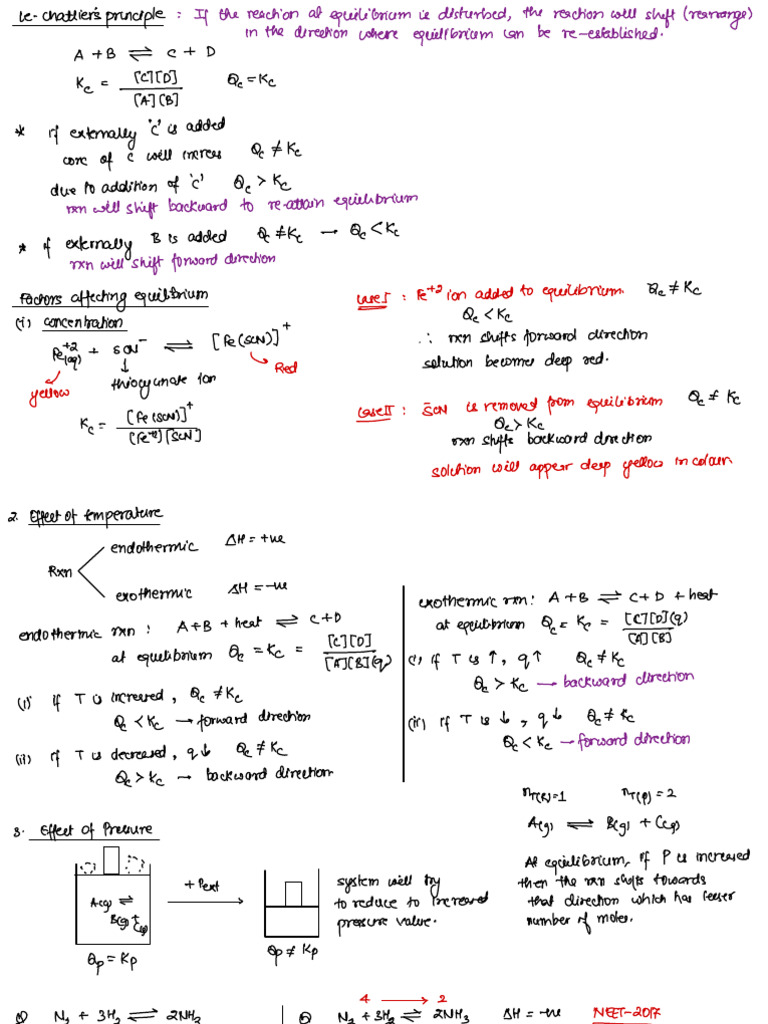 Le-chatlier's principle : If the reaction at equilibrium is disturbed, the reaction will shift (rearrange)
in the direction where equilibrium can be re-established.
A + B ⇌ C + D
Kc = [C][D] / [A][B]   Qc = Kc
* if externally 'c' is added
conc of c will increas   Qc ≠ Kc
due to addition of 'c'   Qc > Kc
rxn will shift backward to re-attain equilibrium
* if externally B is added   Qc ≠ Kc → Qc < Kc
rxn will shift forward direction
Factors affecting equilibrium
(i) concentration
Fe+2(aq) + SCN- ⇌ [Fe(SCN)]+
yellow
thiocyanate ion
Red
Kc = [Fe(SCN)]+ / [Fe+2][SCN]
Case I : Fe+2 ion added to equilibrium.   Qc ≠ Kc
Qc < Kc
∴ rxn shifts forward direction
solution becomes deep red.
Case II : SCN is removed from equilibrium   Qc ≠ Kc
Qc > Kc
rxn shifts backward direction
solution will appear deep yellow in colour
2. Effect of temperature
Rxn
endothermic   ΔH = +ve
exothermic   ΔH = -ve
endothermic rxn : A + B + heat ⇌ C + D
at equilibrium Qc = Kc = [C][D] / [A][B](q)
(i) if T is increased, Qc ≠ Kc
Qc < Kc → forward direction
(ii) if T is decreased, q↓   Qc ≠ Kc
Qc > Kc → backward direction
exothermic rxn : A + B ⇌ C + D + heat
at equilibrium Qc = Kc = [C][D](q) / [A][B]
(i) if T is ↑, q↑   Qc ≠ Kc
Qc > Kc → backward direction
(ii) if T is ↓, q↓   Qc ≠ Kc
Qc < Kc → forward direction
3. Effect of Pressure
A(g) ⇌
B(g) + C(g)
Qp = Kp
+ Pext
Qp ≠ Kp
system will try
to reduce to increased
pressure value.
nT(R)=1   nT(P)=2
A(g) ⇌ B(g) + C(g)
At equilibrium, if P is increased
then the rxn shifts towards
that direction which has fewer
number of moles.
① N2 + 3H2 ⇌ 2NH3
4 → 2
② N2 + 3H2 ⇌ 2NH3   ΔH = -ve   NEET-2017